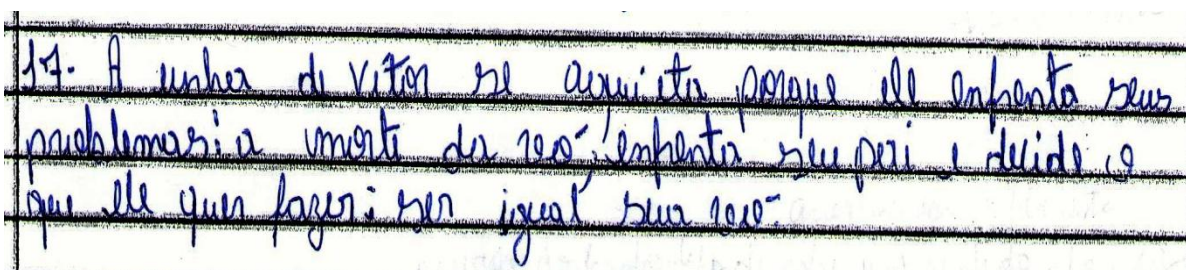 17. A unha de Vitor se aquieta porque ele enfrenta seus
problemas: a morte da vó, enfrenta seu pai e decide o
que ele quer fazer: ser igual sua vó.